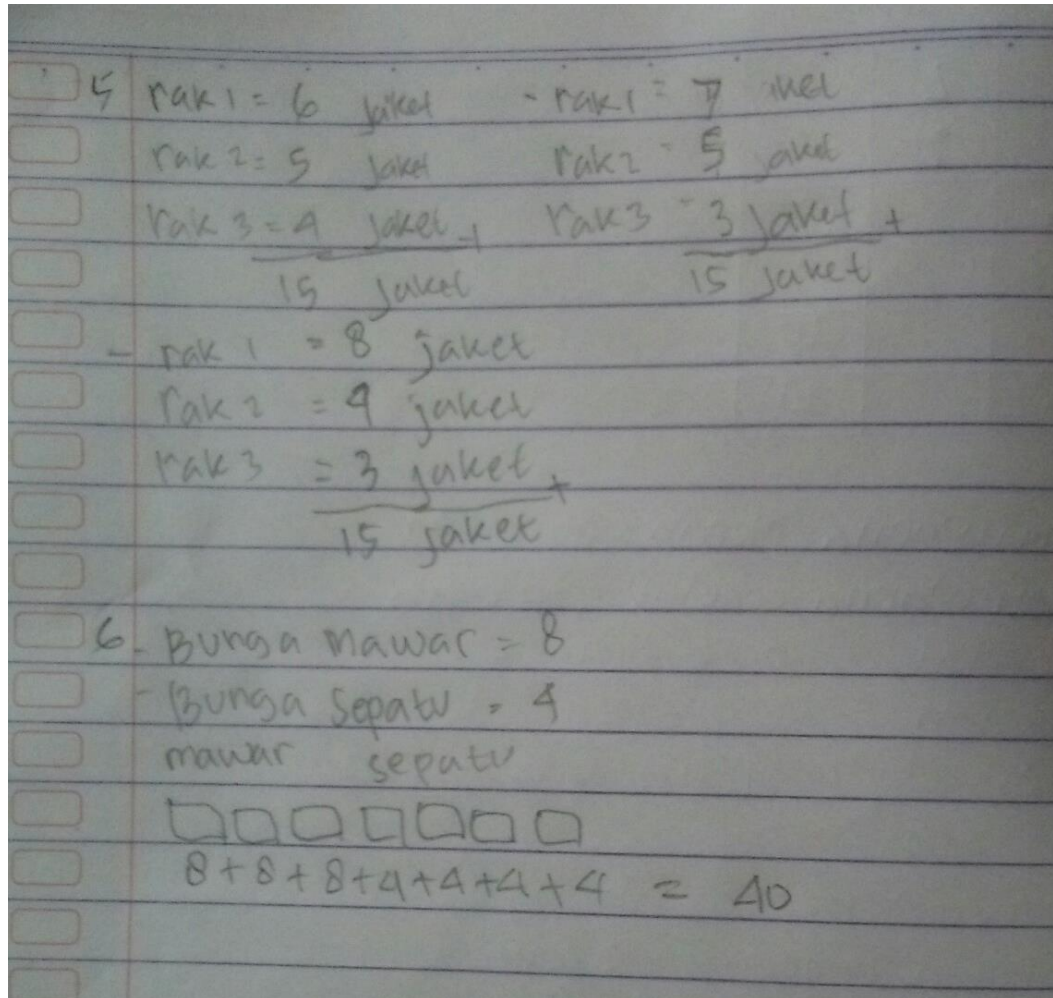 5 rak 1 = 6 jaket - rak 1 = 7
rak 2 = 5 jaket rak 2 = 5 jaket
rak 3 = 4 jaket + rak 3 = 3 jaket +
15 jaket 15 jaket
- rak 1 = 8 jaket
rak 2 = 4 jaket
rak 3 = 3 jaket +
15 jaket
6 - Bunga mawar = 8
- Bunga sepatu = 4
mawar sepatu
8 + 8 + 8 + 4 + 4 + 4 + 4 = 40